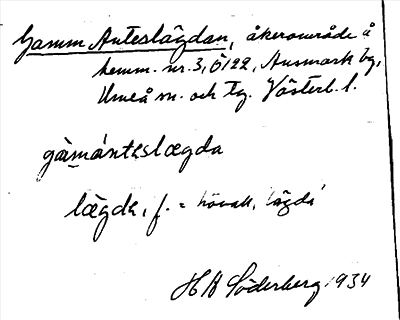 Gamm Anteslägdan, åkerområde å
hemm. nr. 3, Ö122, Ansmark by,
Umeå sn. och tg. Västerb. l.
gàmánteslægda
lægda, f. = hövall, lägda
H A Söderberg 1934